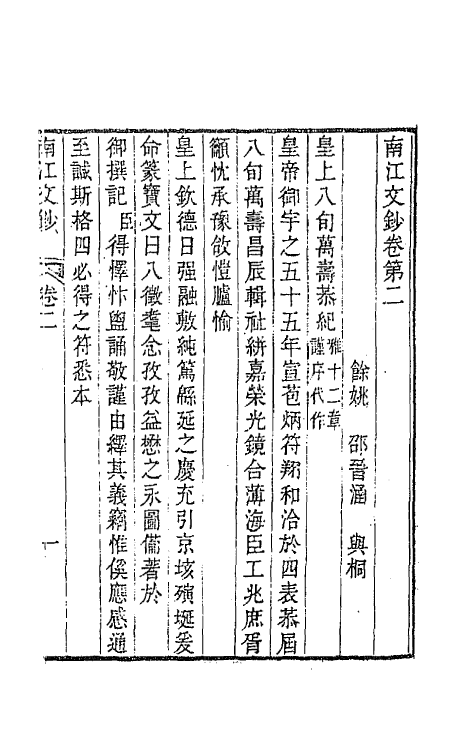 南江文鈔卷第二
餘姚　邵晉涵　與桐
皇上八旬萬壽恭紀雅十二章謹序代作
皇帝御宇之五十五年宣苞炳符翔和洽於四表恭屆
八旬萬壽昌辰輯祉絣嘉榮光鏡合薄海臣工兆庶胥
籲忱承豫敆愷臚愉
皇上欽德日强融敷純篤緜延之慶充引京垓㱩埏爰
命篆寶文曰八徵耄念孜孜益懋之永圖僃著於
御撰記臣得懌忭盥誦敬謹由繹其義竊惟傒應感通
至誠斯格四必得之符悉本
南江文鈔　卷二　一